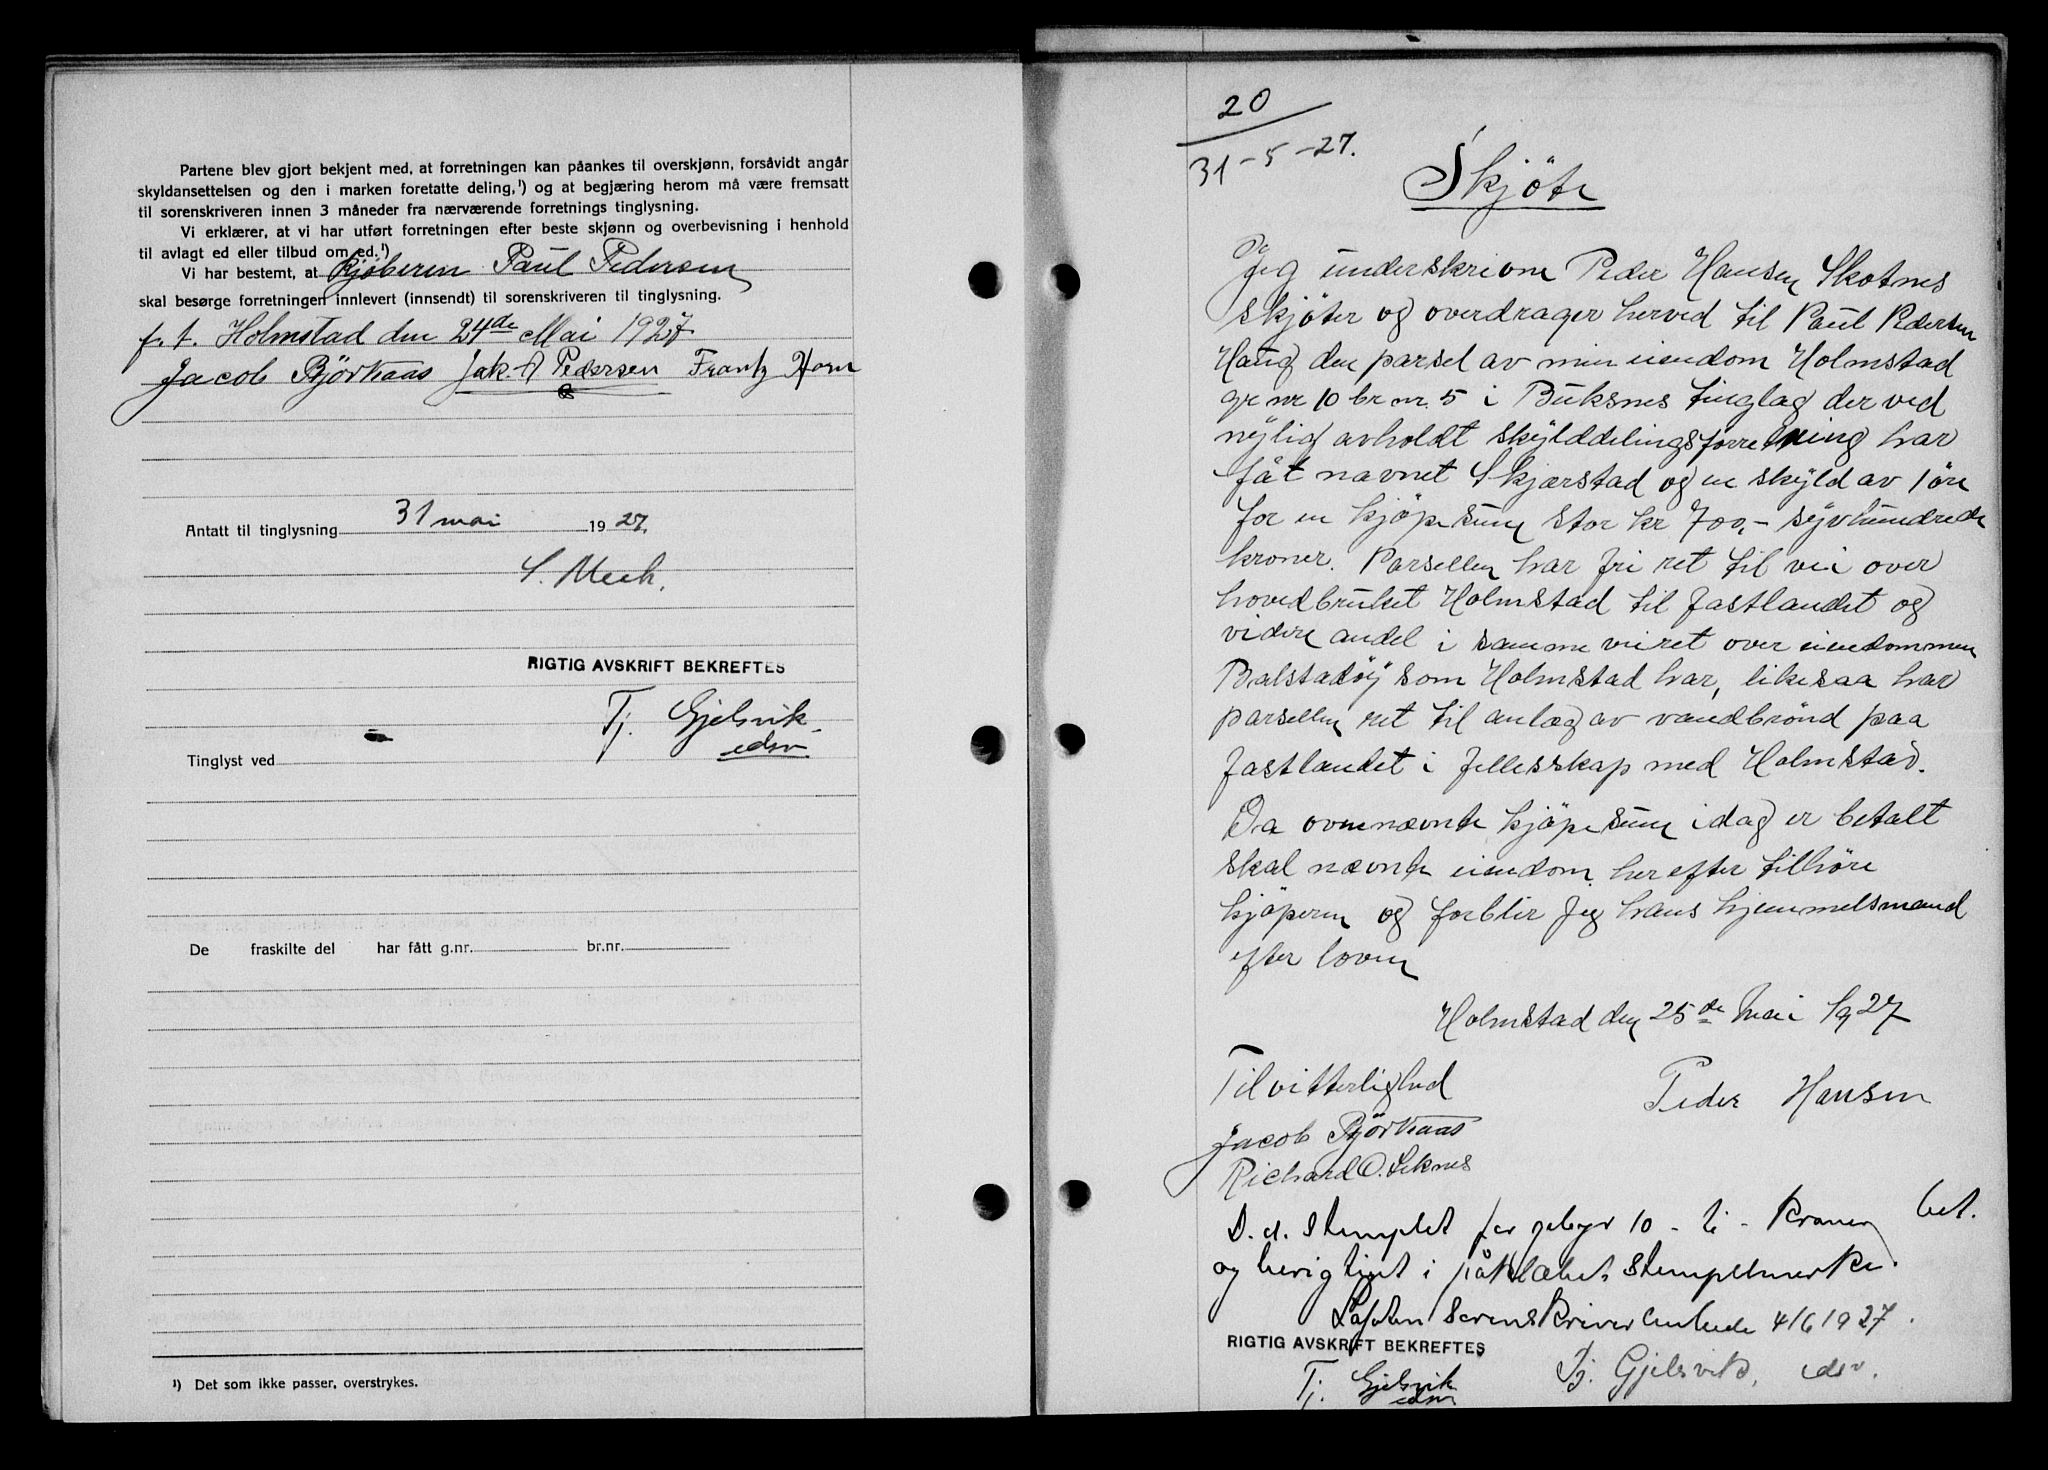 Partene blev gjort bekjent med, at forretningen kan påankes til overskjønn, forsåvidt angår
skyldansettelsen og den i marken foretatte deling,¹) og at begjæring herom må være fremsatt
til sorenskriveren innen 3 måneder fra nærværende forretnings tinglysning.
Vi erklærer, at vi har utført forretningen efter beste skjønn og overbevisning i henhold
til avlagt ed eller tilbud om ed.¹)
Vi har bestemt, at kjøberen Paul Pedersen
skal besørge forretningen innlevert (innsendt) til sorenskriveren til tinglysning.
f. t. Holmstad den 24de Mai 1927
Jacob Björkaas Jak. A Pedersen Frantz Horn
Antatt til tinglysning 31 mai 1927.
RIGTIG AVSKRIFT BEKREFTES
Tj. Gjelsvik
edsv
Tinglyst ved
De fraskilte del har fått g.nr. br.nr.
¹) Det som ikke passer, overstrykes.
20
31-5-27.
Skjöte
Jeg underskrevne Peder Hansen Skotnes
skjöter og overdrager herved til Paul Pedersen
Haug den parsel av min eiendom Holmstad
gr nr 10 br nr. 5 i Buksnes tinglag der ved
nylig avholdt skylddelingsforretning har
fåt navnet Skjærstad og en skyld av 1 öre
for en kjöpesum stor kr 700,- syvhundrede
kroner. Parsellen har fri ret til vei over
hovedbruket Holmstad til fastlandet og
videre andel i samme veiret over eiendommen
Balstadöy som Holmstad har, likesaa har
parsellen ret til anlæg av vandbrönd paa
fastlandet i fellesskap med Holmstad.
Da ovennævnte kjöpesum idag er betalt
skal nævnte eiendom herefter tilhöre
kjöperen og forblir jeg hans hjemmelsmand
efter loven
Holmstad den 25de Mai 1927
Til vitterlighed Peder Hansen
Jacob Björkaas
Richard O. Leknes
D. d. stemplet for gebyr 10 - ti - kroner bet.
og berigtiget i påklæbet stempelmerke.
Lofoten sorenskriverembede 4/6 1927.
RIGTIG AVSKRIFT BEKREFTES
Tj. Gjelsvik, edsv.
Tj. Gjelsvik
edsv